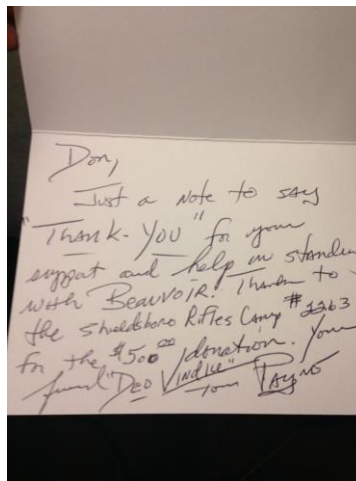 Don,
Just a Note to say
"Thank-You" for your
support and help in standin
with BEAUVOIR. Thanks to
the Shieldsboro Rifles Camp #2263
for the $500.00 donation. Your
friend "DEO VINDICE"
Tom PAYNE